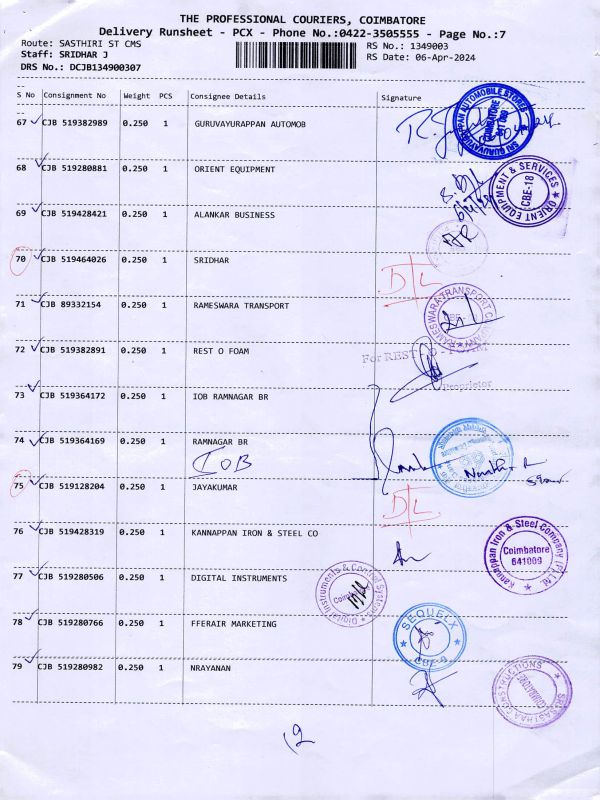 THE PROFESSIONAL COURIERS, COIMBATORE
Delivery Runsheet - PCX - Phone No.:0422-3505555 - Page No.:7
Route: SASTHIRI ST CMS
RS No.: 1349003
Staff: SRIDHAR J
RS Date: 06-Apr-2024
DRS No.: DCJB134900307
S No Consignment No Weight PCS Consignee Details Signature
67 CJB 519382989 0.250 1 GURUVAYURAPPAN AUTOMOB
SRI GURUVAYURAPPAN AUTOMOBILE STORES
COIMBATORE
68 CJB 519280881 0.250 1 ORIENT EQUIPMENT
ORIENT EQUIPMENT & SERVICES
CBE-18
69 CJB 519428421 0.250 1 ALANKAR BUSINESS
70 CJB 519464026 0.250 1 SRIDHAR
D/L
71 CJB 89332154 0.250 1 RAMESWARA TRANSPORT
RAMESWARA TRANSPORT COMPANY
CBE
72 CJB 519382891 0.250 1 REST O FOAM
For REST - O - FOAM
Proprietor
73 CJB 519364172 0.250 1 IOB RAMNAGAR BR
74 CJB 519364169 0.250 1 RAMNAGAR BR
IOB
75 CJB 519128204 0.250 1 JAYAKUMAR
D/L
76 CJB 519428319 0.250 1 KANNAPPAN IRON & STEEL CO
Kannappan Iron & Steel Company (P) Ltd
Coimbatore
641009
77 CJB 519280506 0.250 1 DIGITAL INSTRUMENTS
Digital Instruments & Control Systems
78 CJB 519280766 0.250 1 FFERAIR MARKETING
SEQUELX
CBE-9
79 CJB 519280982 0.250 1 NRAYANAN
SRI SASTHAA CONSTRUCTIONS
COIMBATORE